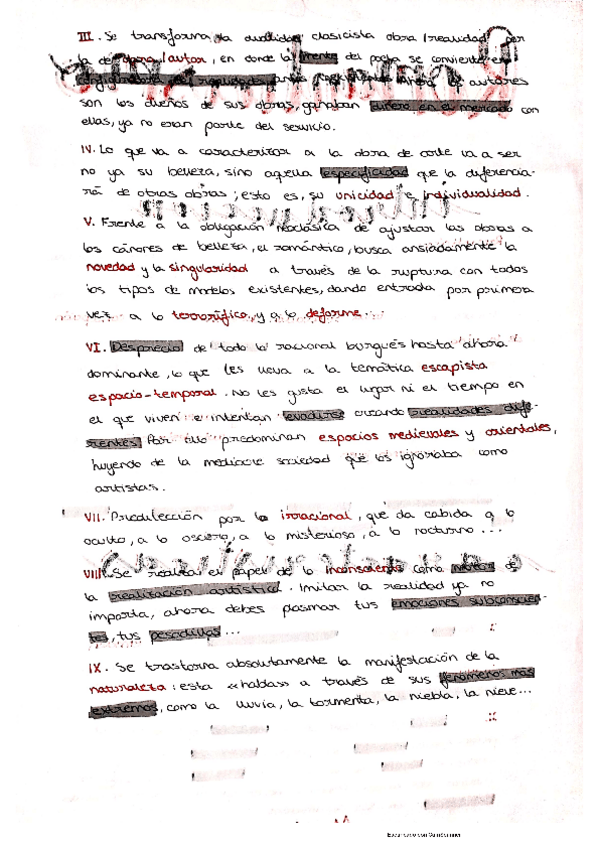 III. Se transforma la dualidad clasicista obra/realidad por
la de obra/autor, en donde la mente del poeta se convierte en
los autores
son los dueños de sus obras, ganaban dinero en el mercado con
ellas, ya no eran parte del servicio.
IV. Lo que va a caracterizar a la obra de arte va a ser
no ya su belleza, sino aquella especificidad que la diferencia-
rá de otras obras; esto es, su unicidad e individualidad.
V. Frente a la obligación neoclásica de ajustar las obras a
los cánones de belleza, el romántico, busca ansiadamente la
novedad y la singularidad a través de la ruptura con todos
los tipos de modelos existentes, dando entrada por primera
vez a lo terrorífico, y a lo deforme...
VI. Desprecio de todo lo racional burgués hasta ahora
dominante, lo que les lleva a la temática escapista
espacio-temporal. No les gusta el lugar ni el tiempo en
el que viven e intentan evadirse creando realidades dife-
rentes. Por ello predominan espacios medievales y orientales,
huyendo de la mediocre sociedad que los ignoraba como
artistas.
VII. Predilección por lo irracional, que da cabida a lo
oculto, a lo oscuro, a lo misterioso, a lo nocturno...
VIII. Se realza el papel de lo inconsciente como de
la realización artística. Imitar la realidad ya no
importa, ahora debes plasmar tus emociones subconscien-
tes, tus pesadillas...
IX. Se trastorna absolutamente la manifestación de la
naturaleza: esta «habla» a través de sus fenómenos más
extremos, como la lluvia, la tormenta, la niebla, la nieve...
Escaneado con CamScanner